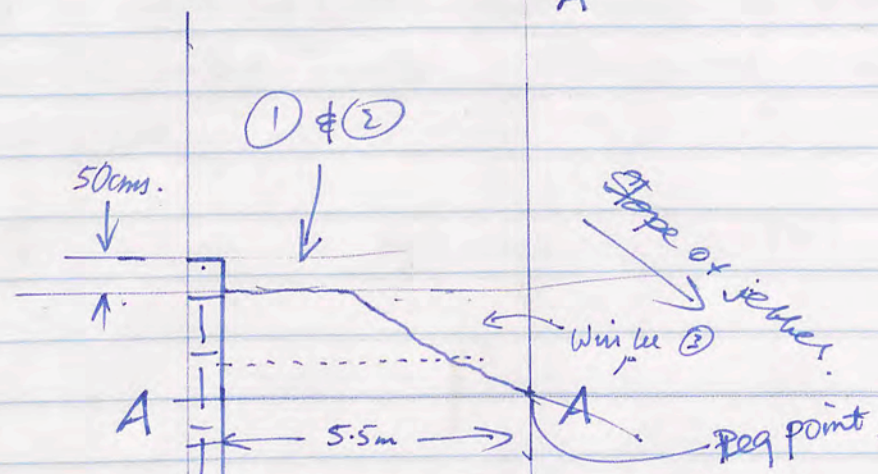 A
① & ②
50cms.
Slope of
Will be ③
A
A
5.5m
Peg point